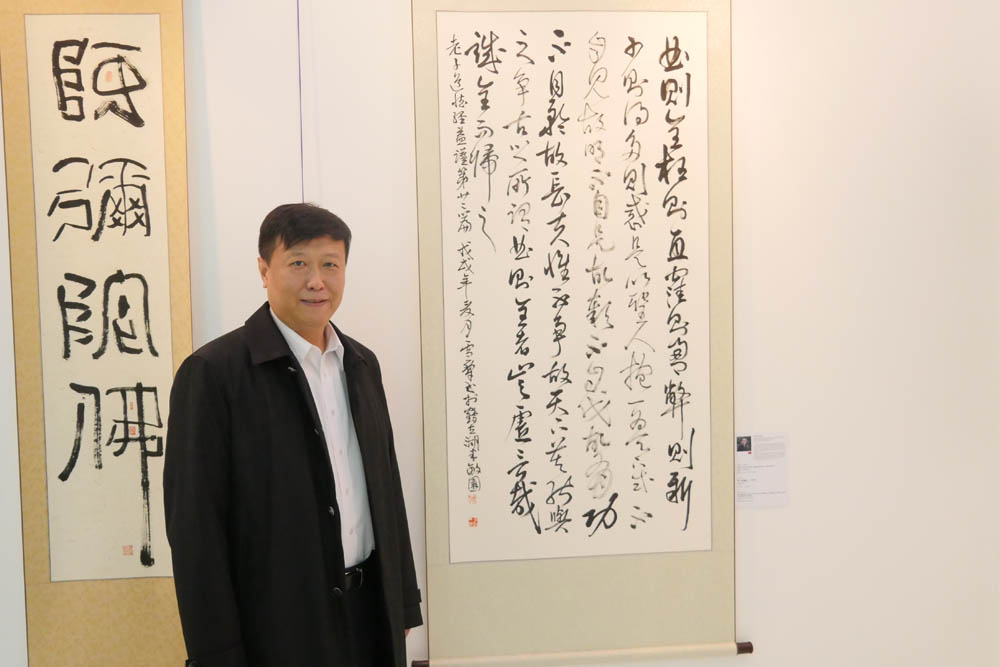 曲則全枉則直窪則盈弊則新
少則得多則惑是以聖人抱一為天下式不
自見故明不自是故彰不自伐故有功
不自矜故長夫惟不爭故天下莫能與
之爭古之所謂曲則全者豈虛言哉
誠全而歸之
老子道德經益謙第廿二篇 戊戌年夏月
阿彌陀佛